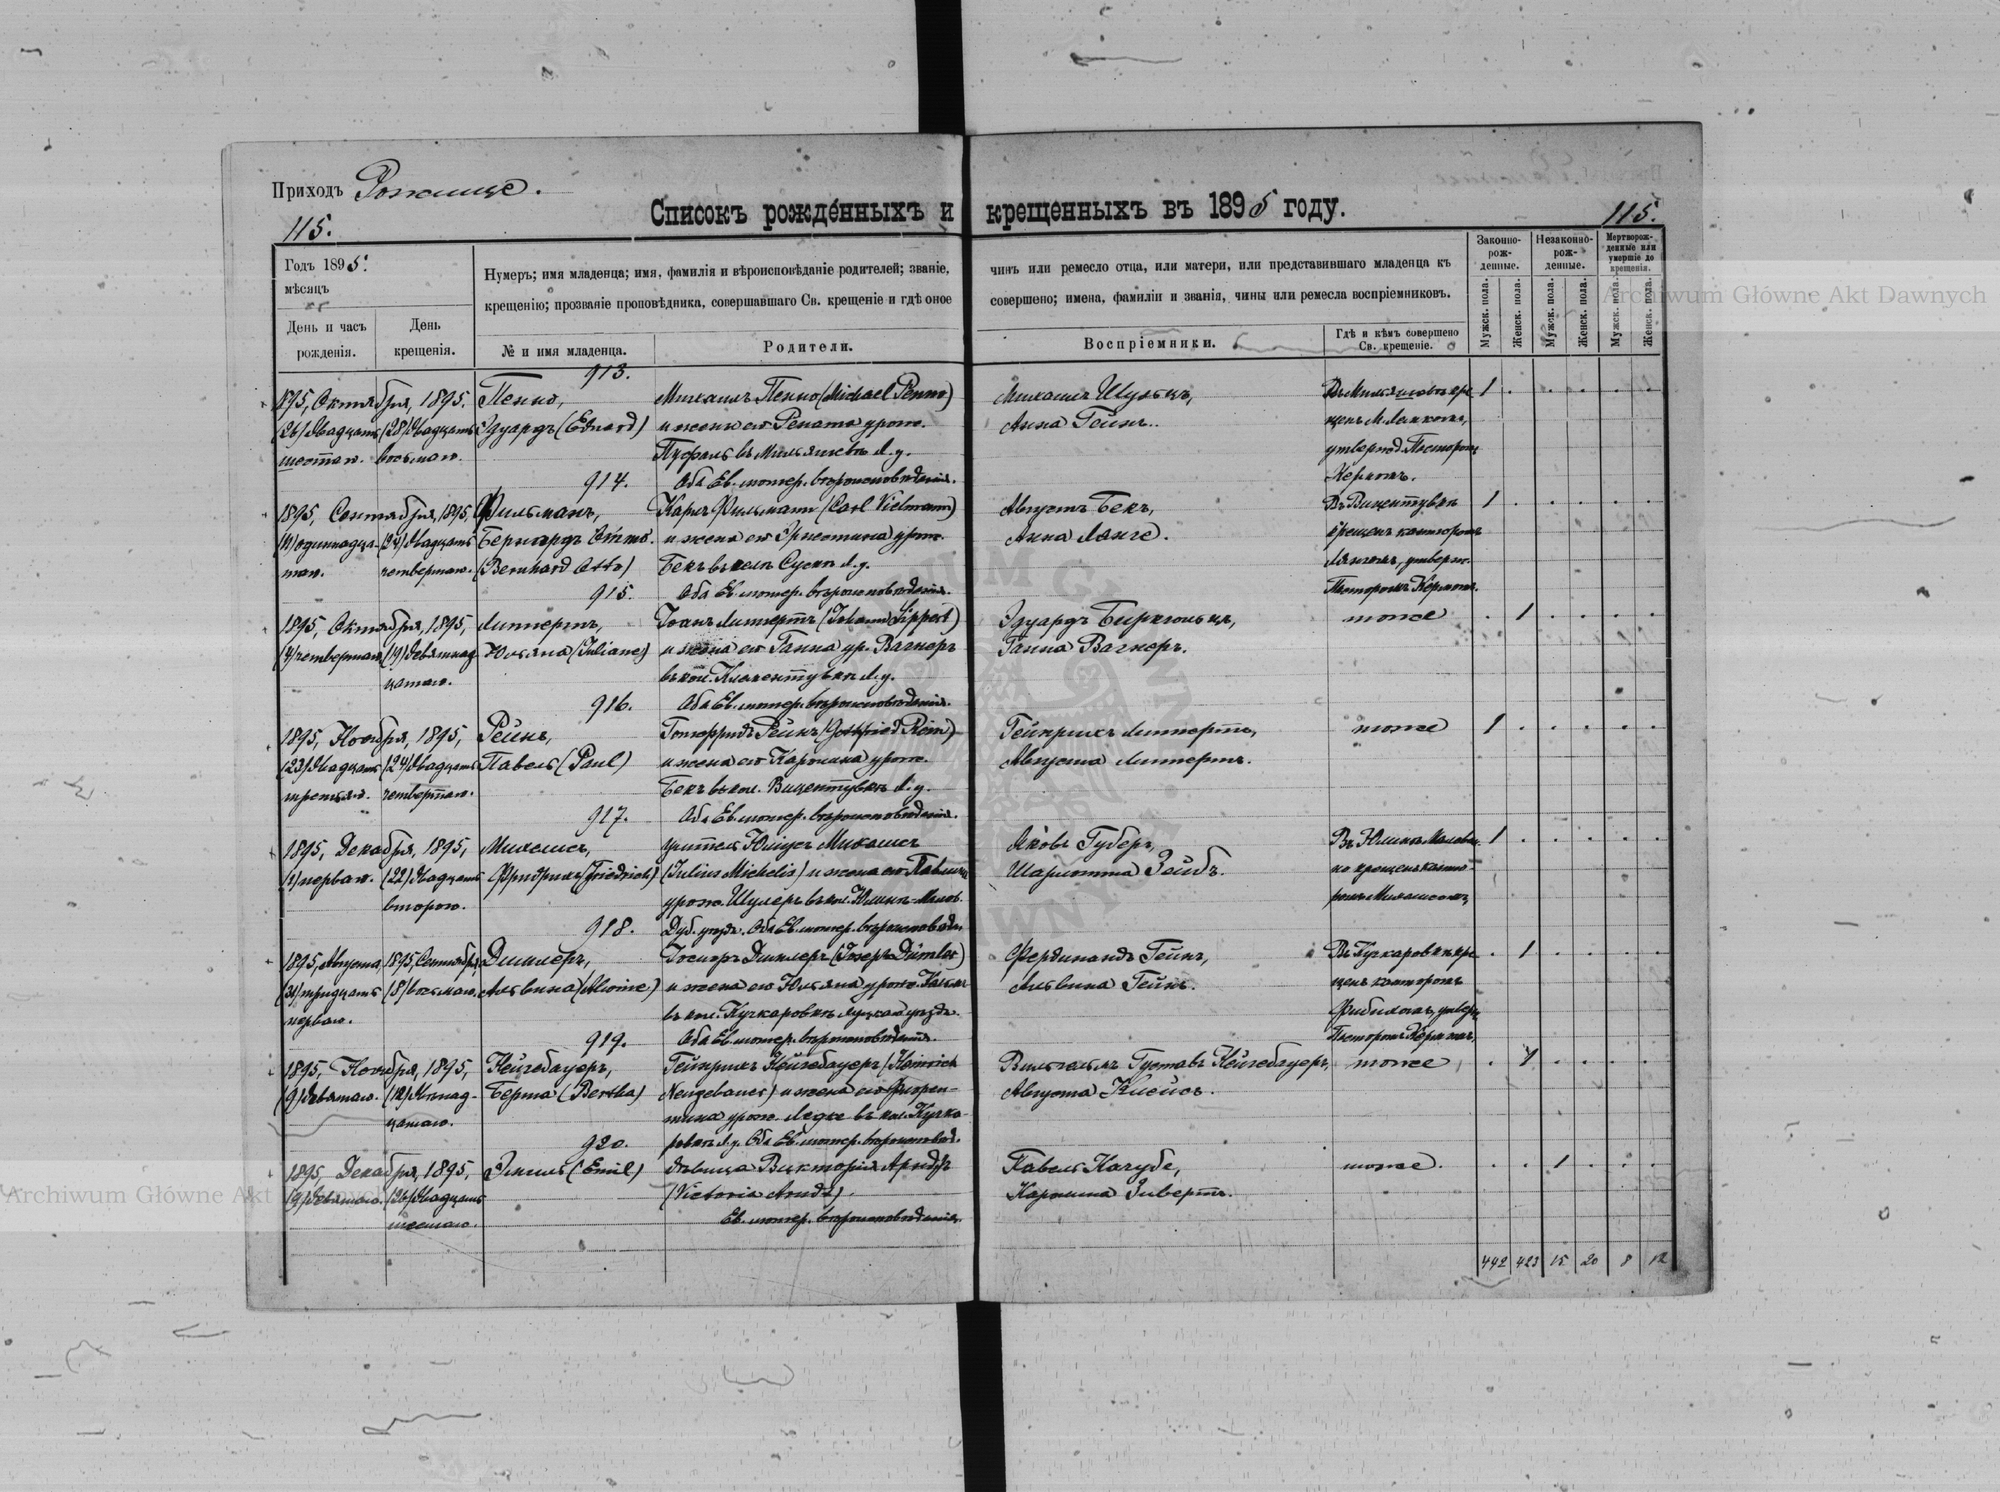 Приходъ Рожище.
115.
Списокъ рожде́нныхъ и крещенныхъ въ 1895 году.
115.
Годъ 1895.
мѣсяцъ
День и часъ рожденія.
День крещенія.
Нумеръ; имя младенца; имя, фамилія и вѣроисповѣданіе родителей; званіе, чинъ или ремесло отца, или матери, или представившаго младенца къ
крещенію; прозваніе проповѣдника, совершавшаго Св. крещеніе и гдѣ оное совершено; имена, фамиліи и званія, чины или ремесла воспріемниковъ.
№ и имя младенца.
Родители.
Воспріемники.
Гдѣ и кѣмъ совершено Св. крещеніе.
Законно-рож-денные.
Незаконно-рож-денные.
Мертворож-денные или умершіе до крещенія.
Мужск. пола.
Женск. пола.
Мужск. пола.
Женск. пола.
Мужск. пола.
Женск. пола.
Archiwum Główne Akt Dawnych
913.
1895, Октября, 1895. Пенно, Михаилъ Пенно (Michael Penno) Михаилъ Шульцъ, 1
(26) двадцать (28) двадцать Эдуардъ (Eduard) и жена его Рената урож. Анна Гейнъ.
шестаго. восьмаго. л.у.
914. Оба Ев. лютер. вѣроисповѣданія.
1895, Сентября, 1895, Фильманъ, Карлъ Фильманъ (Carl Vielmann) Августъ Бекъ, Въ Вицентувкѣ 1
(11) одиннадца- (24) двадцать Бернгардъ Отто. и жена его Эрнестина урож. Анна Ланге. крещенъ канторомъ
таго. четвертаго. (Bernhard Otto) Бекъ л.у.
915. Оба Ев. лютер. вѣроисповѣданія. Пасторомъ Керномъ.
1895, Октября, 1895, Липпертъ, Іоганъ Липпертъ (Johann Lippert) Эдуардъ Биркгольцъ, тоже 1
(4) четвертаго (19) девятнад- Юльяна (Juliane) и жена его Ганна ур. Вагнеръ Ганна Вагнеръ.
цатаго. л.у.
916. Оба Ев. лютер. вѣроисповѣданія.
1895, Ноября, 1895, Рейнъ, Готфридъ Рейнъ (Gottfried Rein) Гейнрихъ Липпертъ, тоже 1
(23) двадцать (24) двадцать Павелъ (Paul) и жена его Каролина урож. Августа Липпертъ.
третьяго. четвертаго. Бекъ въ кол. Вицентувкѣ л.у.
917. Оба Ев. лютер. вѣроисповѣданія.
1895, Декабря, 1895, Михелисъ, учитель Юліусъ Михелисъ Яковъ Губеръ, 1
(1) перваго. (22) двадцать Фридрихъ (Friedrich) (Julius Michelis) и жена его Шарлотта Зейбъ.
втораго. урож. Шулеръ въ кол.
918. Оба Ев. лютер.
1895, Августа, 1895, Сентября, Димлеръ, Іосифъ Димлеръ (Joseph Dümler) Фердинандъ Гейнъ, 1
(31) тридцать (8) восьмаго. Альвина (Alwine) и жена его Юльяна урож. Альвина Гейнъ. щенъ канторомъ
перваго. въ кол. Кучкаровкѣ
919. Оба Ев. лютер. вѣроисповѣданія. Пасторомъ Керномъ.
1895, Ноября, 1895, Нейгебауеръ, Гейнрихъ Нейгебауеръ (Heinrich Вильгельмъ Густавъ Нейгебауеръ, тоже, 1
(9) девятаго. (12) двѣнад- Берта (Bertha) Neugebauer) и жена его Флорен- Августа Клейсъ.
цатаго. тина урож. въ кол. Кучка-
920. ровкѣ л.у. Оба Ев. лютер. вѣроисповѣд.
1895, Декабря, 1895, Эмиль (Emil) дѣвица Викторія Арндтъ Павелъ Качубе, тоже. 1
(9) девятаго. (26) двадцать (Victoria Arndt). Каролина Зивертъ.
шестаго. Ев. лютер. вѣроисповѣданія.
Archiwum Główne Akt Dawnych
442 423 15 20 8 12